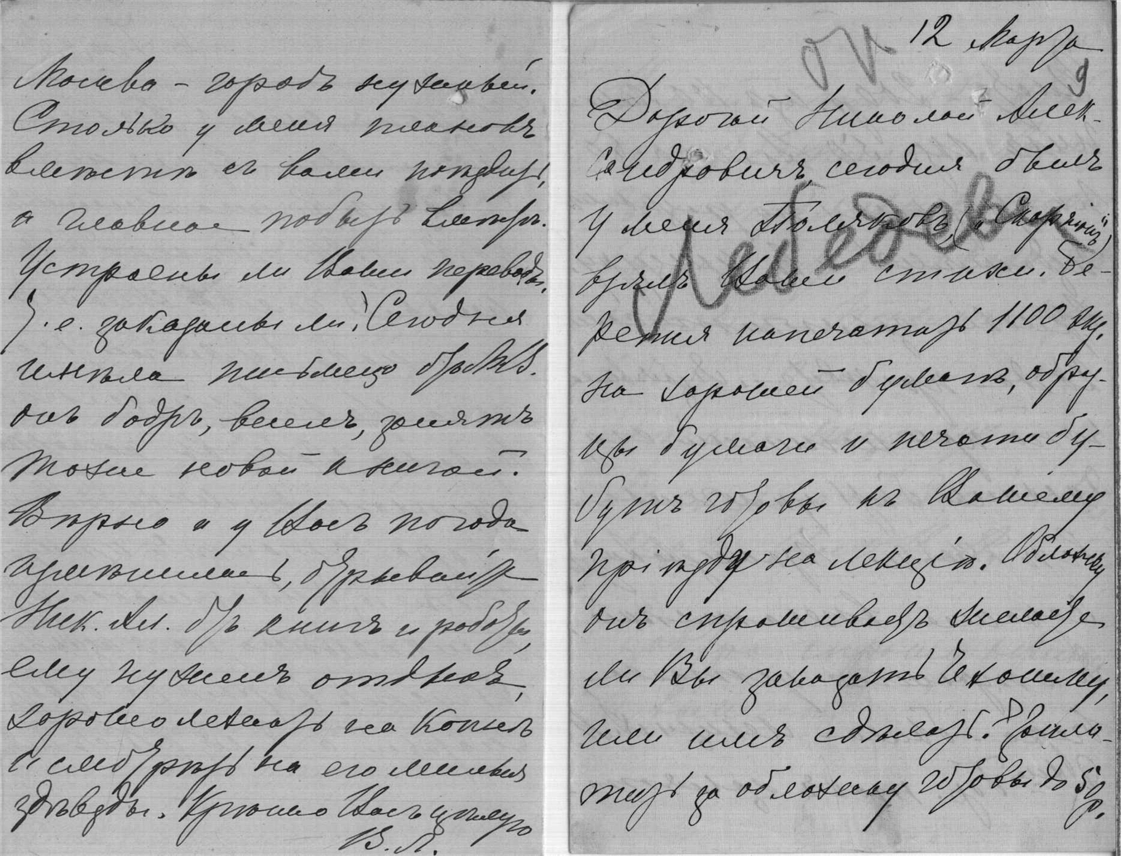 12 Марта
9
ОР
Дорогой Николай Алек-
сандровичъ, сегодня былъ
у меня Поляковъ,
взялъ Ваши стихи. Бе-
рется напечатать 1100 экз.
на хорошей бумагѣ, обра-
зцы бумаги и печати бу-
дутъ готовы къ Вашему
пріѣзду на лекціи. Обложку
онъ спрашиваетъ желаете
ли Вы заказать
или имъ сдѣлать? Запла-
тить за обложку готовы до 50 р.
Лебедева
Москва – городъ нужный.
Столько у меня плановъ
вмѣстѣ съ вами
а главное побыть вмѣстѣ.
Устроены ли Ваши переводы,
т. е. заказаны ли? Сегодня
имѣла письмецо отъ
онъ бодръ, веселъ, занятъ
тоже новой книгой.
Вѣрно и у Васъ погода
измѣнилась, отрывайте
Ник. Ал. отъ книгъ и работы,
ему нуженъ отдыхъ,
хорошо лежать на
и смотрѣть на его милыя
звѣзды. Крѣпко Васъ цѣлую
В. Л.